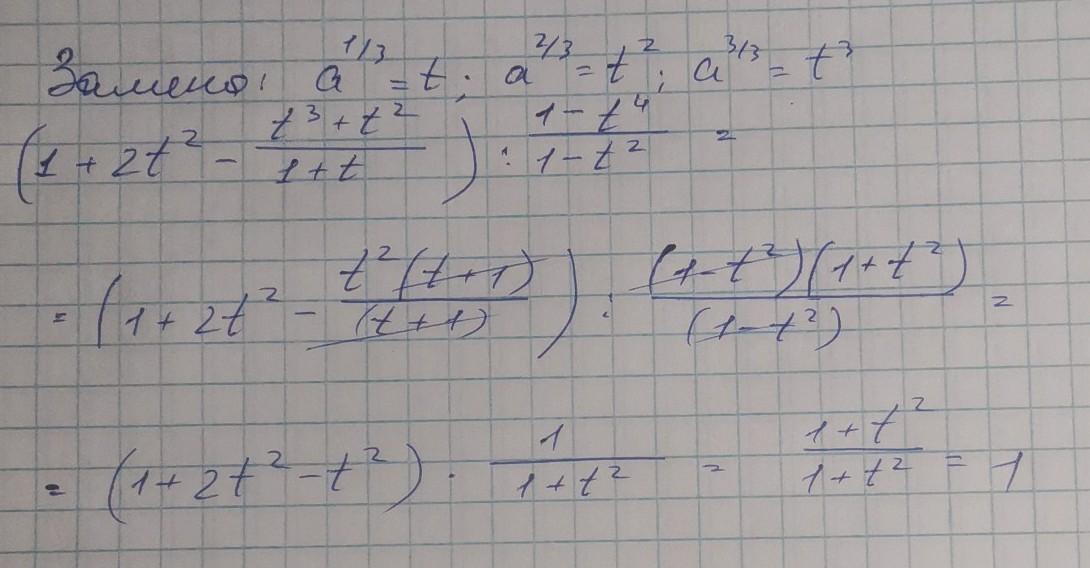 Замена: a^{1/3} = t; a^{2/3} = t^2; a^{3/3} = t^3
(1 + 2t^2 - \frac{t^3 + t^2}{1 + t}) : \frac{1 - t^4}{1 - t^2} =
= (1 + 2t^2 - \frac{t^2(t+1)}{(t+1)}) : \frac{(1-t^2)(1+t^2)}{(1-t^2)} =
= (1 + 2t^2 - t^2) \cdot \frac{1}{1+t^2} = \frac{1+t^2}{1+t^2} = 1